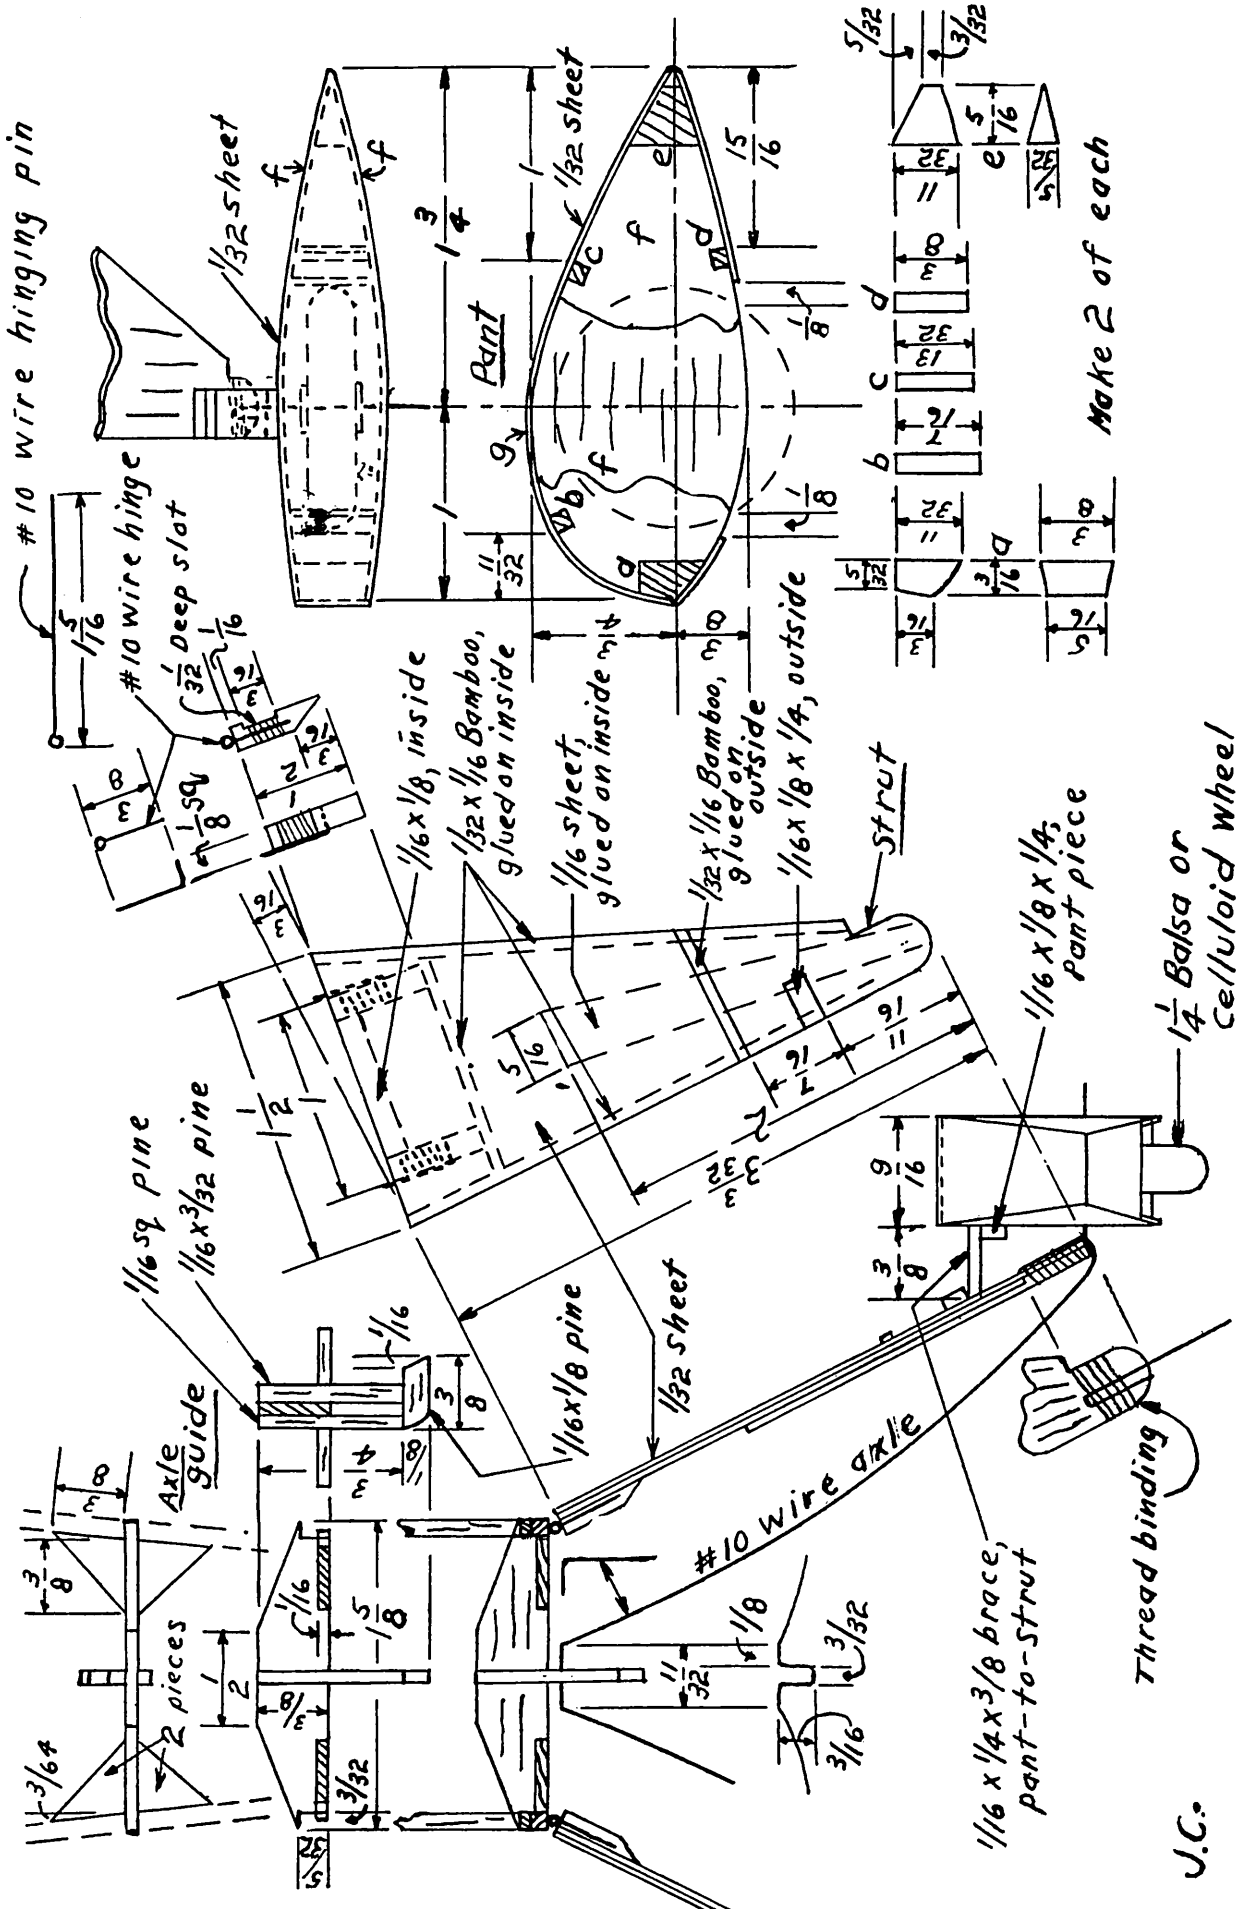 #10 wire hinging pin
1 5/16
#10 wire hinge
1/32 Deep slot
1/16
3/16
3/8
1/8 sq
1/2
3/16
3/16
1/32 sheet
f
f
1
1 3/4
Pant
1
1/32 sheet
g
f
b
c
f
d
e
a
11/32
3/4
3/8
1/8
1/8
15/16
5/32
3/32
11/32
5/16
e
5/32
d
3/8
c
13/32
b
7/16
5/32
11/32
3/16
a
3/16
3/8
5/16
Make 2 of each
1/16 x 1/8, inside
1/32 x 1/16 Bamboo,
glued on inside
1/16 sheet,
glued on inside
1/32 x 1/16 Bamboo,
glued on
outside
1/16 x 1/8 x 1/4, outside
strut
1 1/2
1
5/16
7/16
11/16
2
3 3/32
1/16 sq pine
1/16 x 3/32 pine
Axle
guide
1/16
3/8
3/4
1/8
1/16 x 1/8 pine
1/32 sheet
3/8
3/8
3/64
2 pieces
1/2
3/8
1/16
1 5/8
3/32
5/32
#10 wire axle
11/32
1/8
3/32
3/16
9/16
3/8
1/16 x 1/8 x 1/4,
pant piece
1 1/4 Balsa or
Celluloid wheel
1/16 x 1/4 x 3/8 brace,
pant-to-strut
Thread binding
J.C.